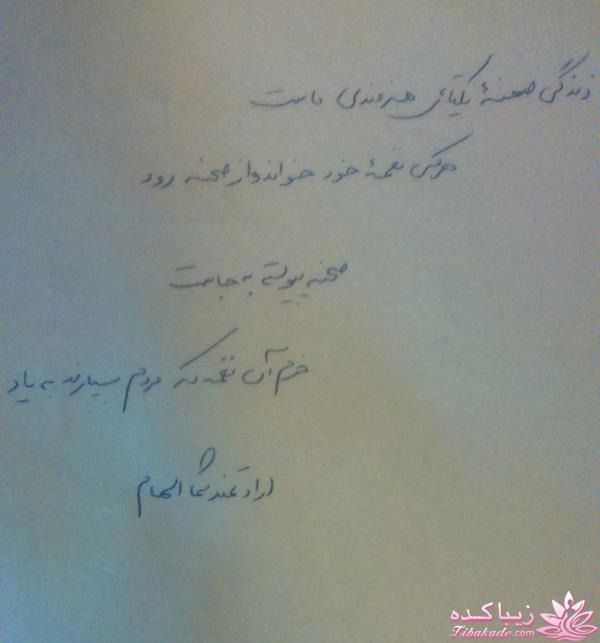 زندگی صحنهٔ یکتای هنرمندی ماست
هرکس نغمهٔ خود خواند و از صحنه رود
صحنه پیوسته به جاست
خرم آن نغمه که مردم بسپارند به یاد
ارادتمند شما الهام
زیباکده
Zibakade.com